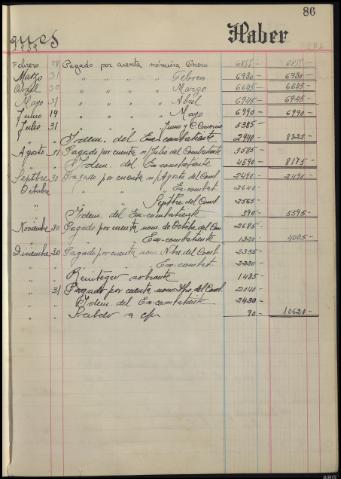 86
ques
1939
Haber
Febrero 28 Pagado por cuenta nómina Enero 6855- 6855-
Marzo 31 " " " " Febrero 6980- 6980-
Abril 30 " " " " Marzo 6605- 6605-
Mayo 31 " " " " Abril 6945- 6945-
Junio 19 " " " " Mayo 6990- 6990-
Julio 31 " " " Junio 5385-
" " Idem. del Ex-combatiente 2940- 8325-
Agosto 31 Pagado por cuenta n/ Julio del Combatiente 3585-
" " Idem. del Ex-combatiente 4590- 8175-
Septbre 30 Pagado por cuente n/ Agosto del Comb. 2490- 2490-
Octubre " " " Ex-combat. 2640-
" " " Septbre del Comb. 2565-
" " Idem. del Ex-combatiente 390- 5595-
Noviembre 30 Pagado por cuenta nom. de Octbre. del Com. 2685-
" " Ex-combatiente 1320- 4005-
Diciembre 30 Pagado por cuenta nom. Nbre. del Comb.
" " Ex-combat.
" " Reintegro sobrante 1485-
" 31 Pagado por cuenta nom. del Comb. 2040-
" " Idem del Ex-combatiente 2430-
" " Saldo a c/n 90- 10620-